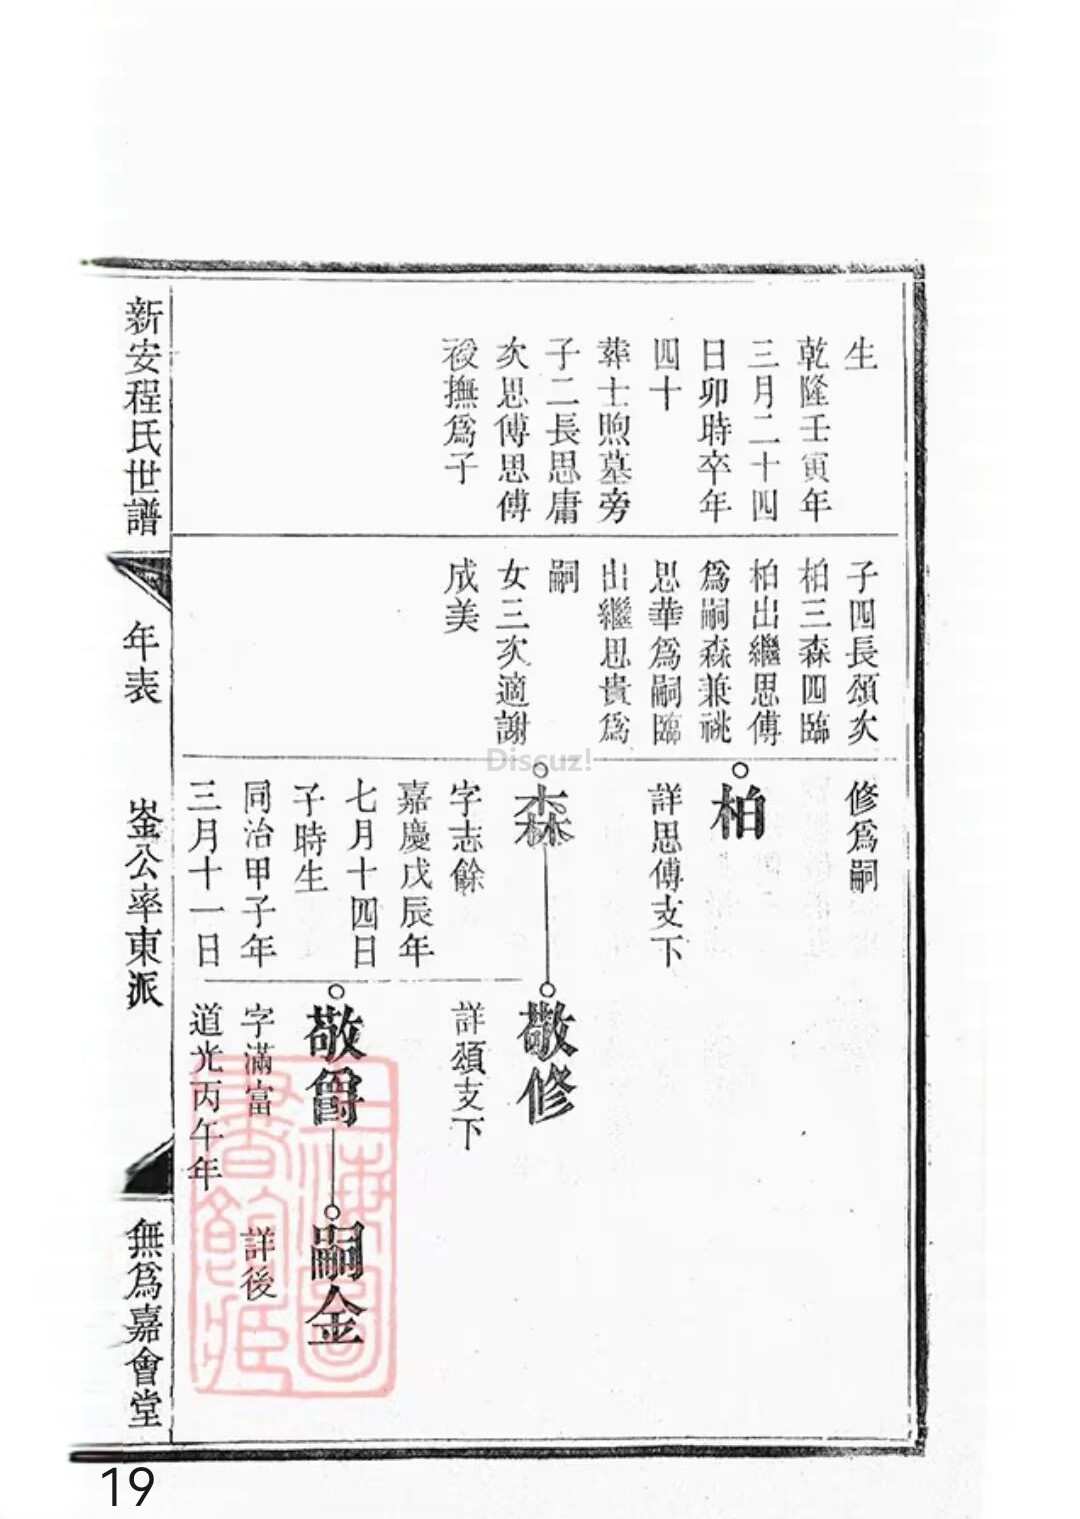 生
乾隆壬寅年
三月二十四
日卯時卒年
四十
葬士煦墓旁
子二長思庸
次思傅思傅
後撫爲子
子四長頌次
柏三森四臨
柏出繼思傅
爲嗣森兼祧
思華爲嗣臨
出繼思貴爲
嗣
女三次適謝
成美
修爲嗣
柏
詳思傅支下
森
字志餘
嘉慶戊辰年
七月十四日
子時生
同治甲子年
三月十一日
敬修
詳頌支下
敬爵
字滿富
道光丙午年
嗣金
詳後
新安程氏世譜
年表
崟公率東派
無爲嘉會堂
上海圖
書館藏
Discuz!
19